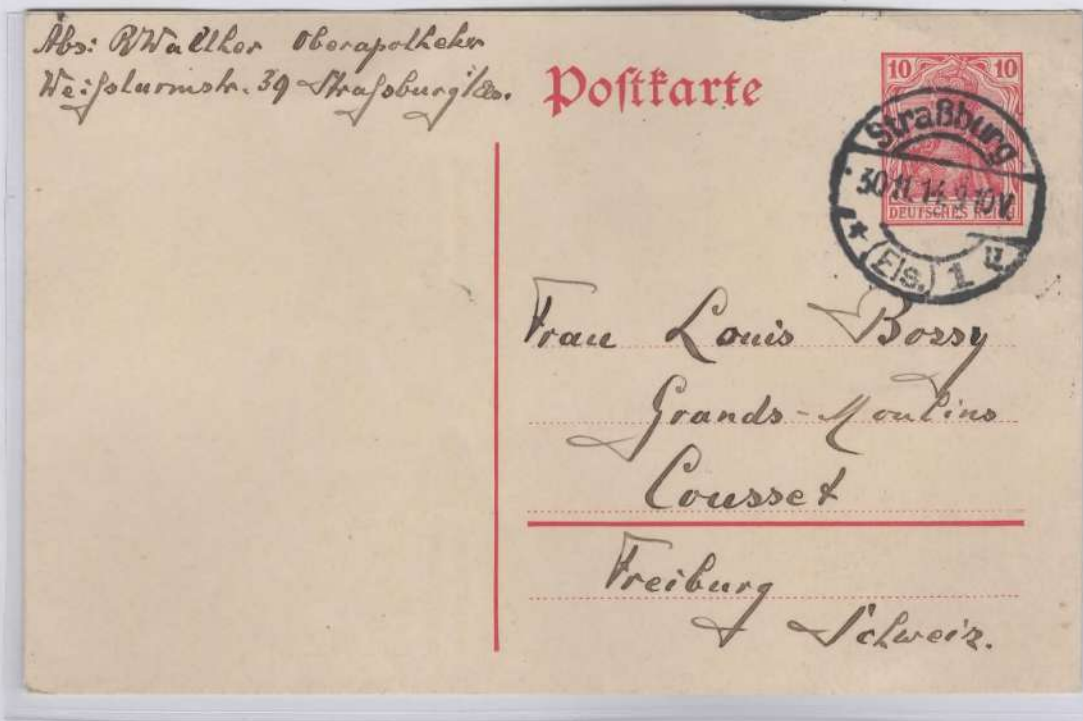 Abs: R Walther Oberapotheker
Weißturmstr. 39 Straßburg i/Els.
Postkarte
10 10
DEUTSCHES REICH
Straßburg
30.11.14. 9-10V.
* (Els.) 1 u
Frau Louis Bossy
Grands-Moulins
Cousset
Freiburg
Schweiz.